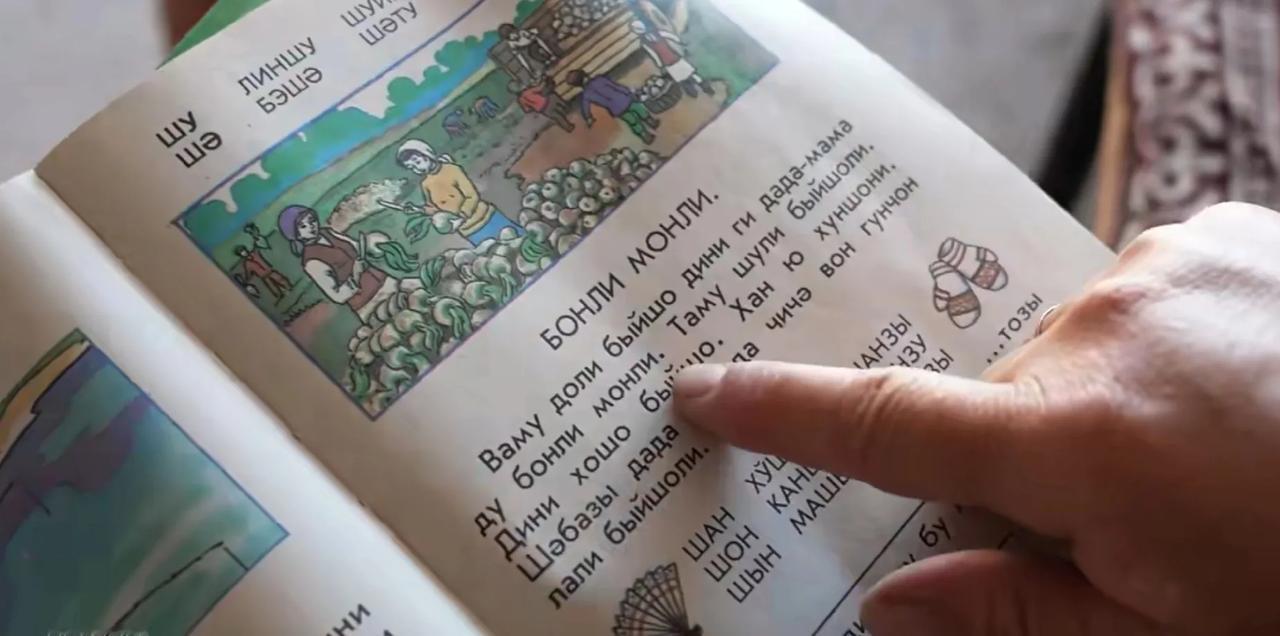 ШУ ЛИНШУ
ШӘ БЭШӘ ШӘТУ
БОНЛИ МОНЛИ.
Ваму доли быйшо дини ги дада-мама
ду бонли монли. Таму шули быйшоли.
Дини хошо Хан ю хуншони.
Шәбазы дада чичә вон гунчон
лали быйшоли.
ШАН
ШОН
ШЫН
...тозы
бу